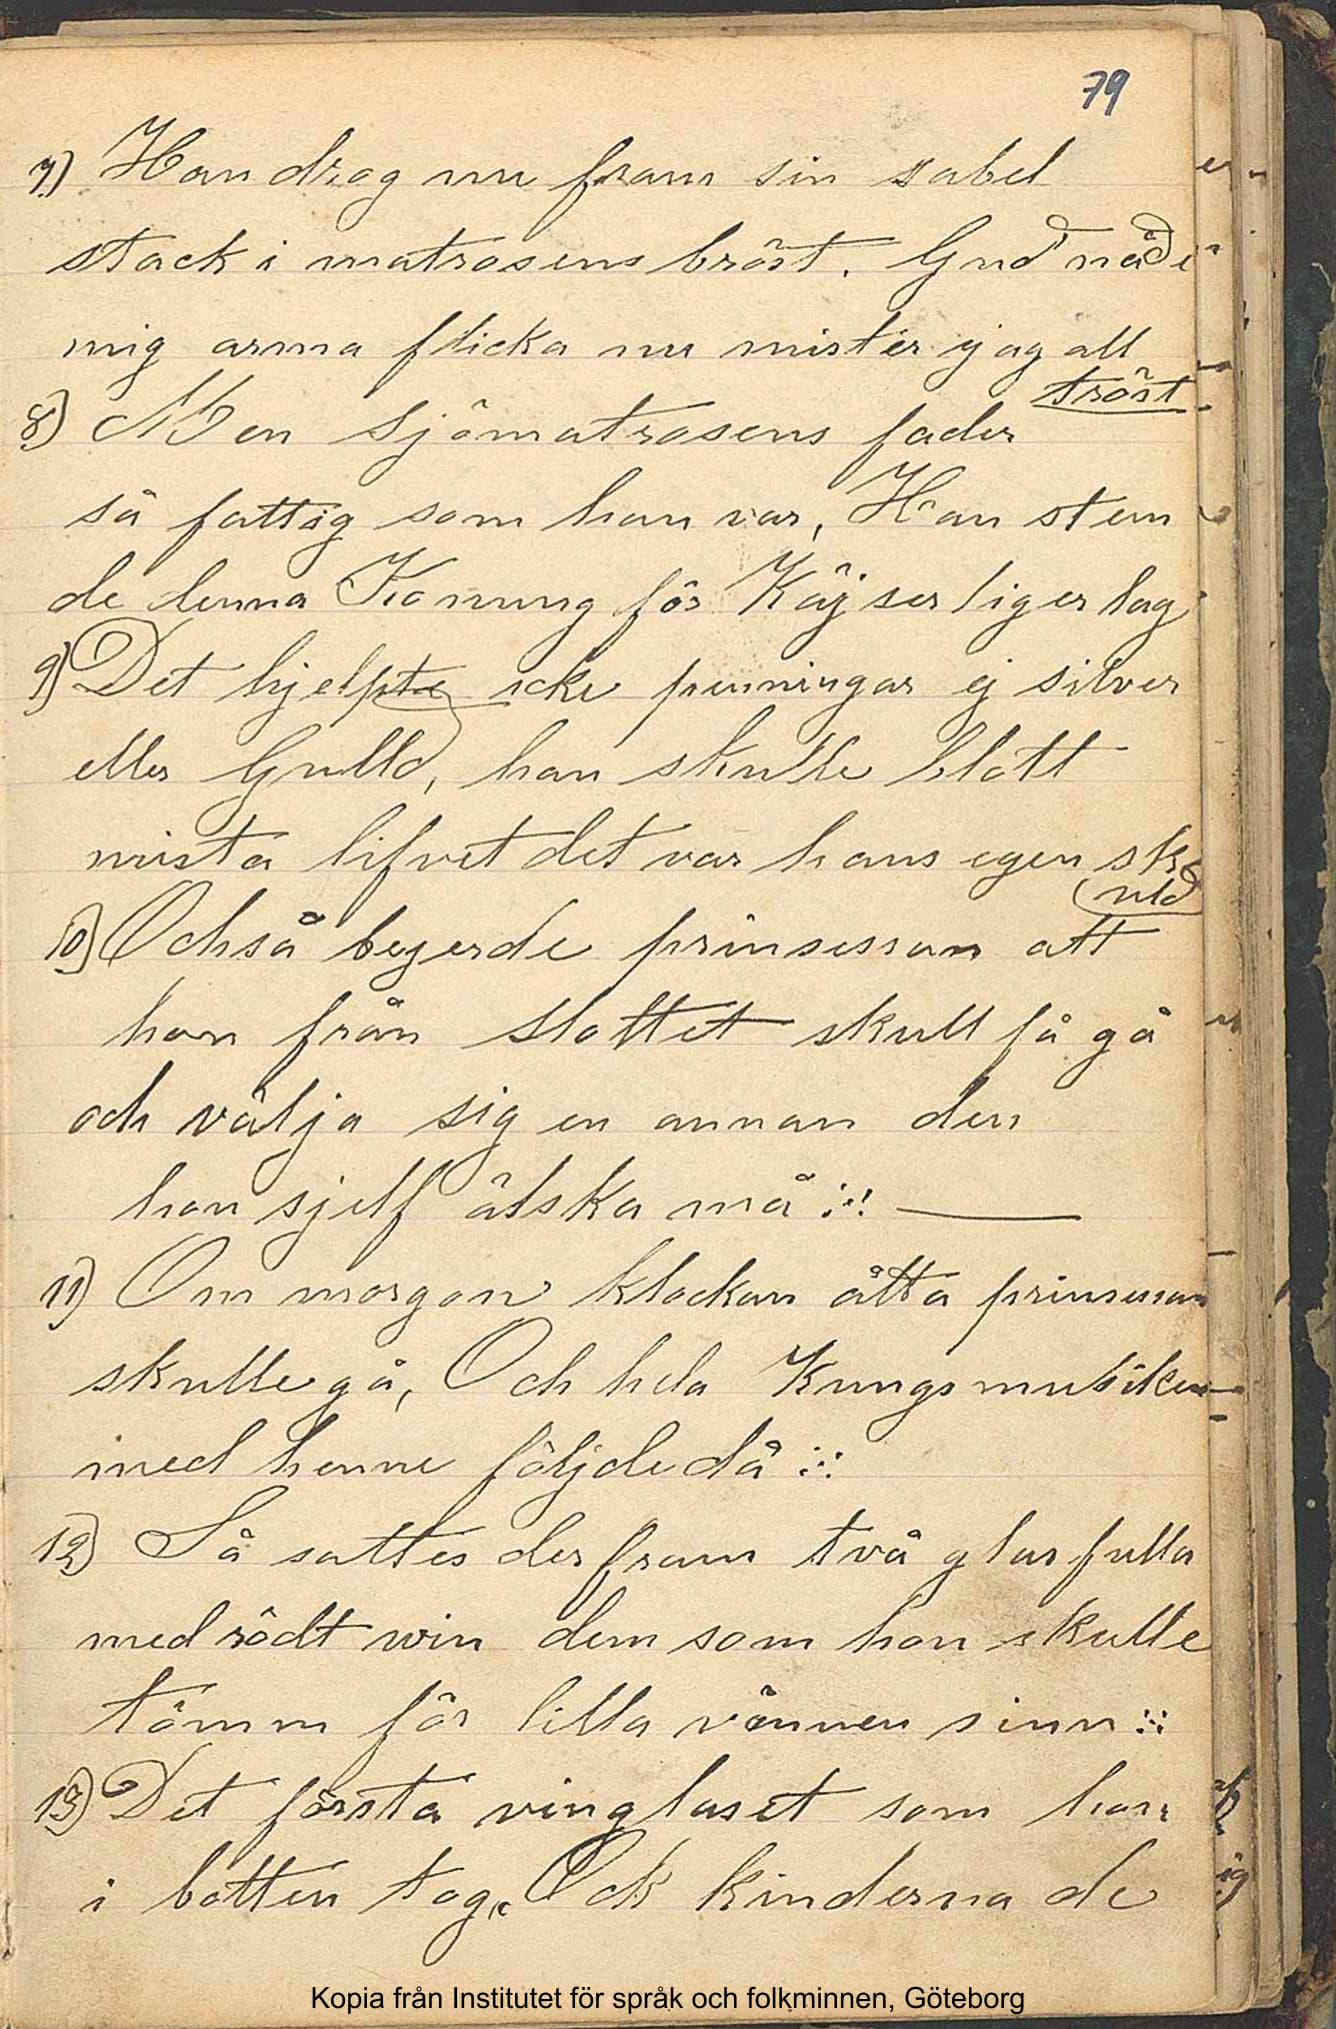 79
7) Han drog nu fram sin sabel
stack i matrosens bröst. Gud nåde
mig arma flicka nu mister jag all
tröst
8) Men Sjömatrosens fader
så fattig som han var, Han stem
de denna Konung för Käjserliger lag
9) Det hjelpte icke penningar ej silver
eller Gulld, han skulle blott
mista lifvet det var hans egen sk
uld
10) Ochså begerde prinsessan att
hon från slottet skull få gå
och välja sig en annan den
hon sjelf älska må :::
11) Om morgon klockan åtta prinsessan
skulle gå, Och hela Kungsmusiken
med henne följde då :::
12) Så sattes der fram två glas fulla
med rödt win dem som hon skulle
tömm för lilla vännen sinn :::
13) Det första vinglaset som hon
i botten tog, Och kinderna de
Kopia från Institutet för språk och folkminnen, Göteborg